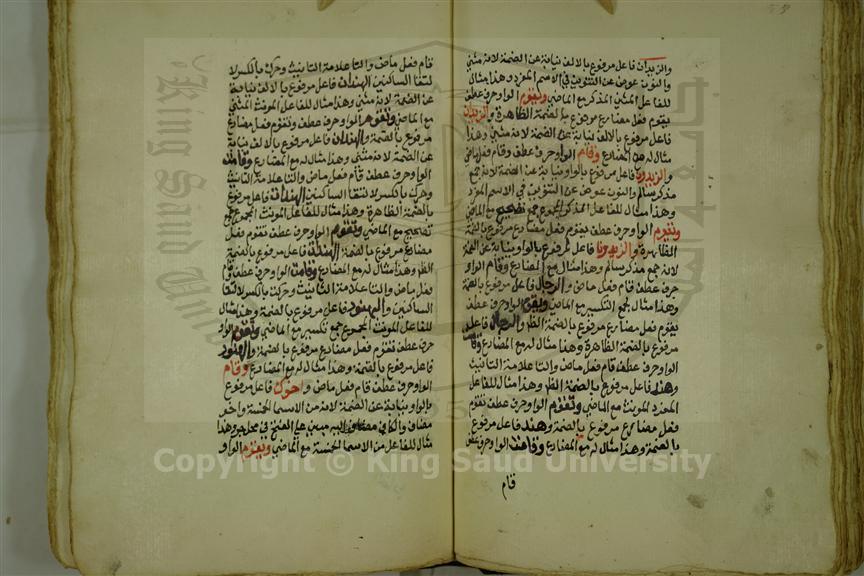 والزيدان فاعل مرفوع بالالف نيابة عن الضمة لانه مثنى
والنون عوض عن التنوين في الاسم المفرد وهذا مثال
للفاعل المثنى المذكر مع الماضي ويقوم الواو حرف عطف
يقوم فعل مضارع مرفوع بالضمة الظاهرة والزيدان
فاعل مرفوع بالالف نيابة عن الضمة لانه مثنى وهذا
مثال له مع المضارع وقام الواو حرف عطف وقام فعل ماض
والزيدون فاعل مرفوع بالواو نيابة عن الضمة لانه جمع
مذكر سالم والنون عوض عن التنوين في الاسم المفرد
وهذا مثال للفاعل المذكر المجموع جمع تصحيح مع الماضي
ويقوم الواو حرف عطف يقوم فعل مضارع مرفوع بالضمة
الظاهرة والزيدون فاعل مرفوع بالواو نيابة عن الضمة
لانه جمع مذكر سالم وهذا مثال له مع المضارع وقام الواو
حرف عطف قام فعل ماض والرجال فاعل مرفوع بالضمة
وهذا مثال لجمع التكسير مع الماضي ويقوم الواو حرف عطف
يقوم فعل مضارع مرفوع بالضمة الظا والرجال فاعل
مرفوع بالضمة الظاهرة وهذا مثال له مع المضارع وقامت
الواو حرف عطف قام فعل ماض والتا علامة التانيث
وهند فاعل مرفوع بالضمة الظا وهذا مثال للفاعل
المفرد المونث مع الماضي وتقوم الواو حرف عطف تقوم
فعل مضارع مرفوع بالضمة وهند فاعل مرفوع
بالضمة وهذا مثال له مع المضارع وقامت الواو حرف عطف
قام
قام فعل ماض والتا علامة التانيث وحركت بالكسر لا
لتقا الساكنين الهندان فاعل مرفوع بالالف نيابة
عن الضمة لانه مثنى وهذا مثال للفاعل المونث المثنى
مع الماضي وتقوم الواو حرف عطف وتقوم فعل مضارع
مرفوع بالضمة والهندان فاعل مرفوع بالالف نيابة
عن الضمة لانه مثنى وهذا مثال له مع المضارع وقامت
الواو حرف عطف قام فعل ماض والتا علامة التانيث
وحركت بالكسر لالتقا الساكنين الهندات فاعل مرفوع
بالضمة الظاهرة وهذا مثال للفاعل المونث المجموع جمع
تصحيح مع الماضي وتقوم الواو حرف عطف تقوم فعل
مضارع مرفوع بالضمة الهندات فاعل مرفوع بالضمة
الظا وهذا مثال له مع المضارع وقامت الواو حرف عطف قام
فعل ماض والتا علامة التانيث وحركت بالكسر لالتقا
الساكنين والهنود فاعل مرفوع بالضمة وهذا مثال
للفاعل المونث المجموع جمع تكسير مع الماضي وتقوم الواو
حرف عطف تقوم فعل مضارع مرفوع بالضمة والهنود
فاعل مرفوع بالضمة وهذا مثال له مع المضارع وقام
الواو حرف عطف قام فعل ماض واخوك فاعل مرفوع
بالواو نيابة عن الضمة لانه من الاسما الخمسة واخو
مضاف والكاف مضاف اليه مبني على الفتح في محل جر وهذا
مثال للفاعل من الاسما الخمسة مع الماضي ويقوم الواو
Copyright © King Saud University
King Saud University